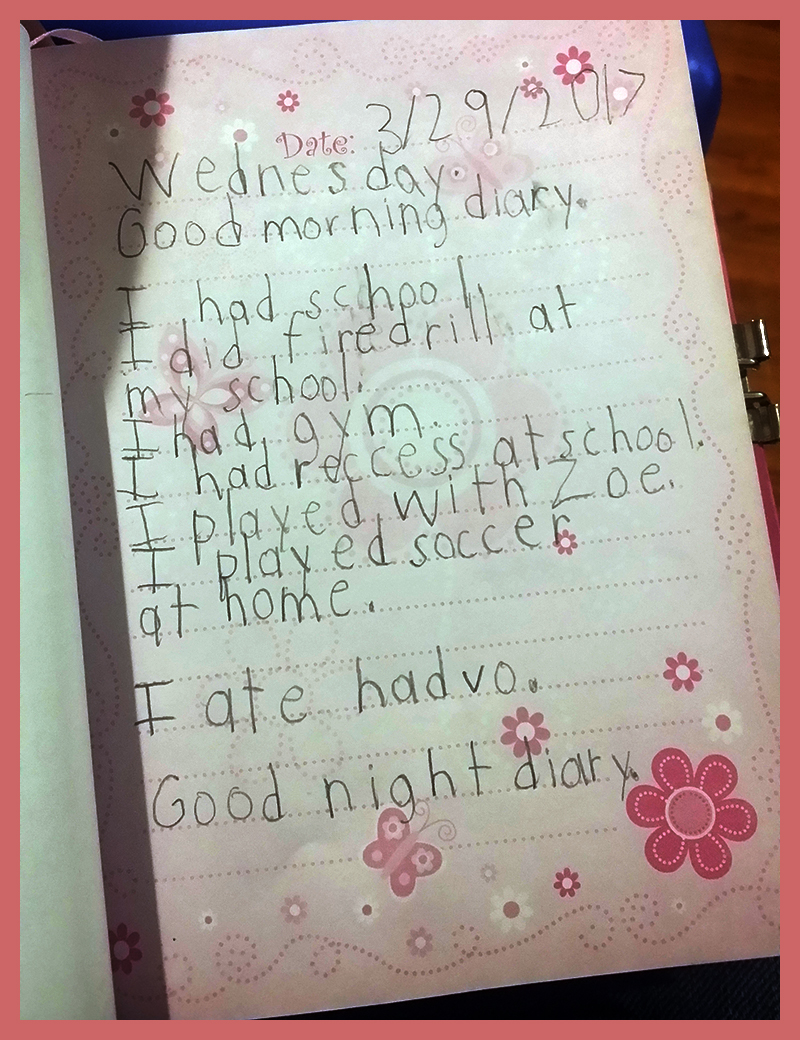 Date: 3/29/2017
Wednesday.
Good morning diary.
I had school.
I did firedrill at
my school.
I had gym.
I had reccess at school.
I played with Zoe.
I played soccer
at home.
I ate hadvo.
Good night diary.